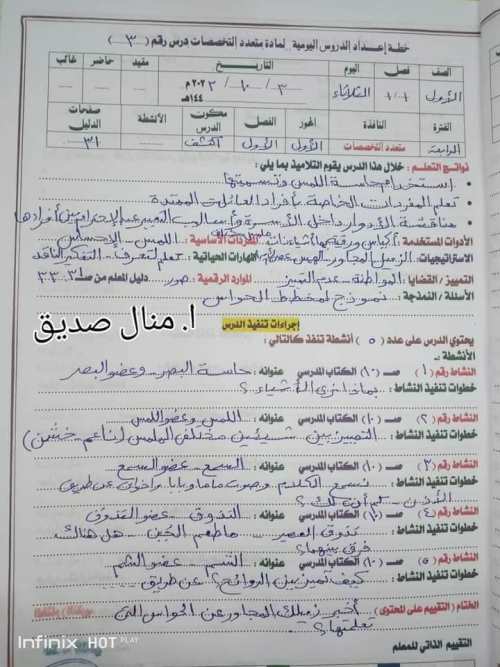 خطة إعداد الدروس اليومية لمادة متعدد التخصصات درس رقم (٣)
الصف فصل اليوم التاريخ مقيد حاضر غائب
الأول ١/١ الثلاثاء ٣ / ١٠ / ٢٠٢٣ م
١٤٤ هـ
الفترة النافذة المحور الفصل مكون الدرس الأنشطة صفحات الدليل
الرابعة متعدد التخصصات الأول الأول اكتشف ٣١
نواتج التعلم : خلال هذا الدرس يقوم التلاميذ بما يلي :
• استخدام حاسة اللمس وتسميتها
• تعلم المفردات الخاصة بأفراد العائلات الممتدة
• مناقشة الأدوار داخل الأسرة وأساليب التعبير عن الاحترام بين أفرادها
الأدوات المستخدمة : أكياس ورقية بها أشياء ذات ملمس مختلف المفردات الأساسية : اللمس - الإحساس
الاستراتيجيات : الزميل المجاور - الهمس المهارات الحياتية : تعلم لتعرف - التفكير الناقد
التمييز / القضايا : المواطنة - عدم التمييز الموارد الرقمية : صور دليل المعلم من صـ ٣١ : ٣٣
الأسئلة / النمذجة : نموذج لمخطط الحواس
إجراءات تنفيذ الدرس
ا. منال صديق
يحتوي الدرس على عدد ( ٥ ) أنشطة تنفذ كالتالي :
الأنشطة :
النشاط رقم ( ١ ) صـ ( ١٠ ) الكتاب المدرسي عنوانه : حاسة البصر - وعضو البصر
خطوات تنفيذ النشاط : بماذا نرى الأشياء ؟
النشاط رقم ( ٢ ) صـ ( ١٠ ) الكتاب المدرسي عنوانه : اللمس وعضو اللمس
خطوات تنفيذ النشاط : التمييز بين شيئين مختلفي الملمس ( ناعم - خشن )
النشاط رقم ( ٣ ) صـ ( ١٠ ) الكتاب المدرسي عنوانه : السمع - عضو السمع
خطوات تنفيذ النشاط : نسمع الكلام وصوت ماما وبابا وإخواتي عن طريق
الأذن - كم أذن لك ؟
النشاط رقم ( ٤ ) صـ ( ١٠ ) الكتاب المدرسي عنوانه : التذوق - عضو التذوق
خطوات تنفيذ النشاط : تذوق العصير ما طعم الجبن - هل هناك
فرق بينهما ؟
النشاط رقم ( ٥ ) صـ ( ١٠ ) الكتاب المدرسي عنوانه : الشم - عضو الشم
خطوات تنفيذ النشاط : كيف نميز بين الروائح ؟ عن طريق
الختام ( التقييم على المحتوى ) أخبر زميلك المجاور عن الحواس التي
تعلمتها ؟
التقييم الذاتي للمعلم
Infinix HOT PLAY